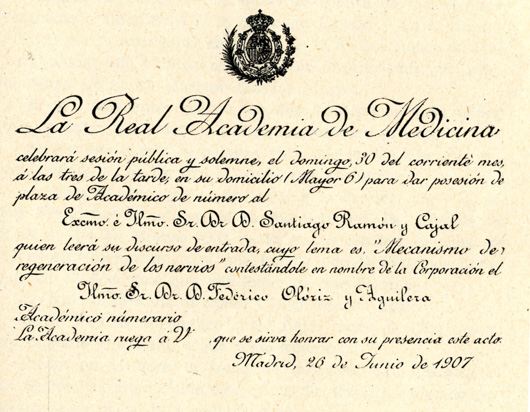 La Real Academia de Medicina
celebrará sesión pública y solemne, el domingo, 30 del corriente mes,
á las tres de la tarde, en su domicilio (Mayor 6) para dar posesión de
plaza de Académico de número al
Excmo. é Ilmo. Sr. Dr. D. Santiago Ramón y Cajal
quien leerá su discurso de entrada, cuyo tema es, "Mecanismo de
regeneración de los nervios" contestándole en nombre de la Corporación el
Ilmo. Sr. Dr. D. Federico Olóriz y Aguilera
Académico númerario
La Academia ruega á V que se sirva honrar con su presencia este acto.
Madrid, 26 de Junio de 1907